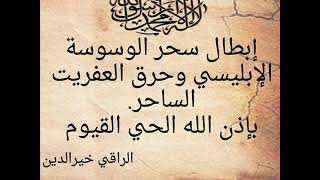 لا إله إلا الله محمد رسول الله
إبطال سحر الوسوسة
الإبليسي وحرق العفريت
الساحر.
بإذن الله الحي القيوم
الراقي خيرالدين